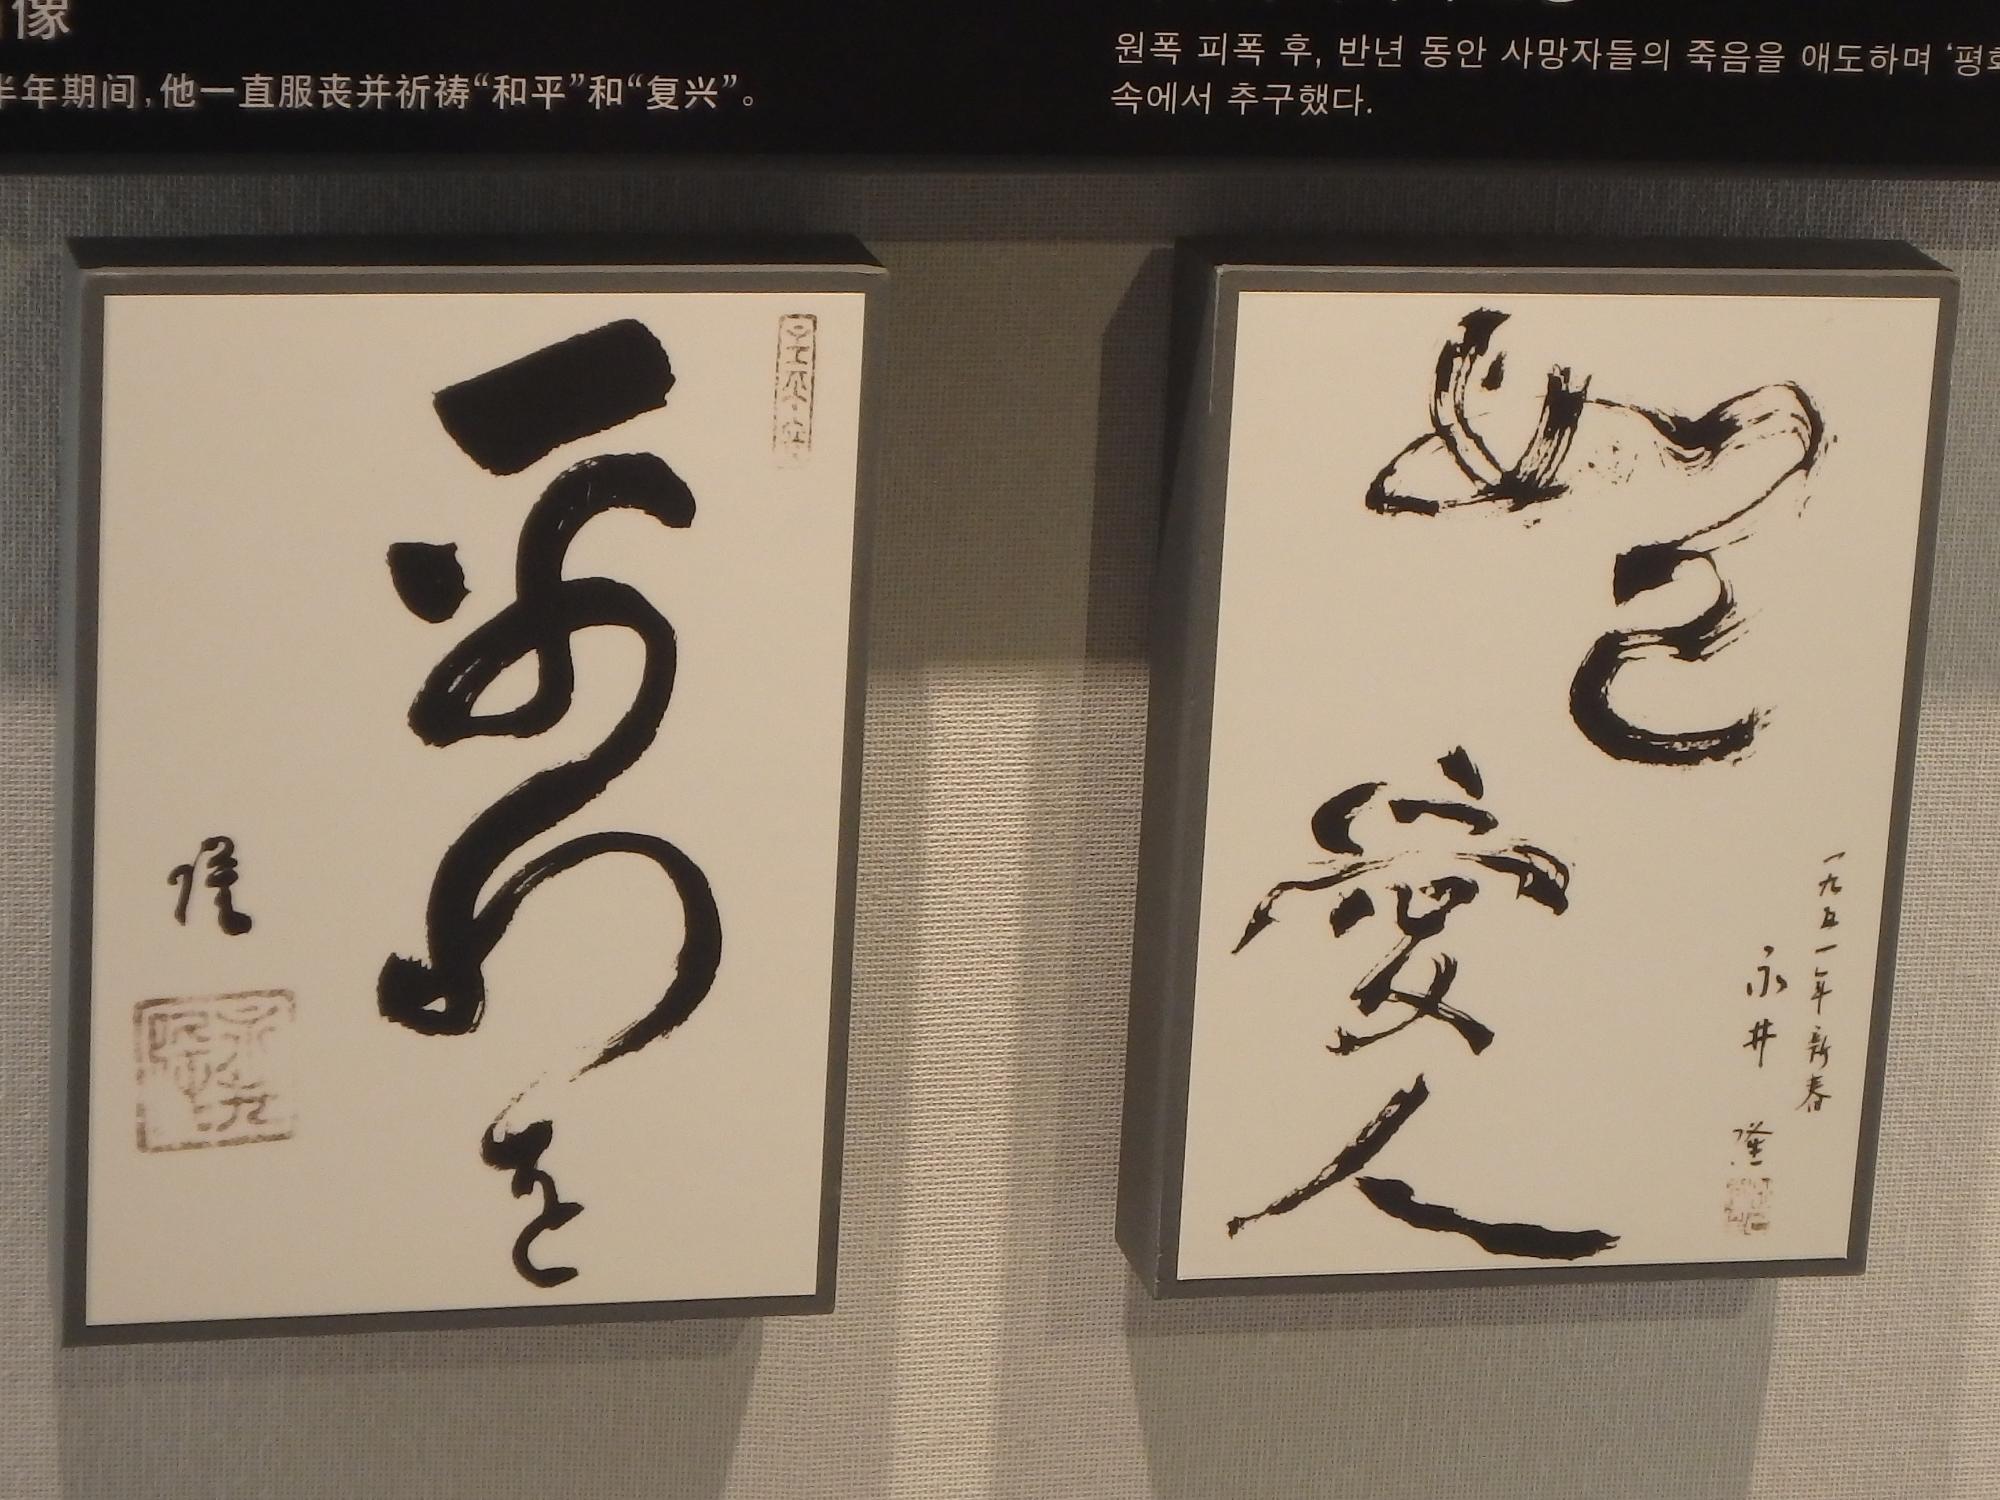 像
半年期间,他一直服丧并祈祷“和平”和“复兴”。
원폭 피폭 후, 반년 동안 사망자들의 죽음을 애도하며 ‘평화
속에서 추구했다.
平和を
隆
如己
愛人
一九五一年新春
永井隆